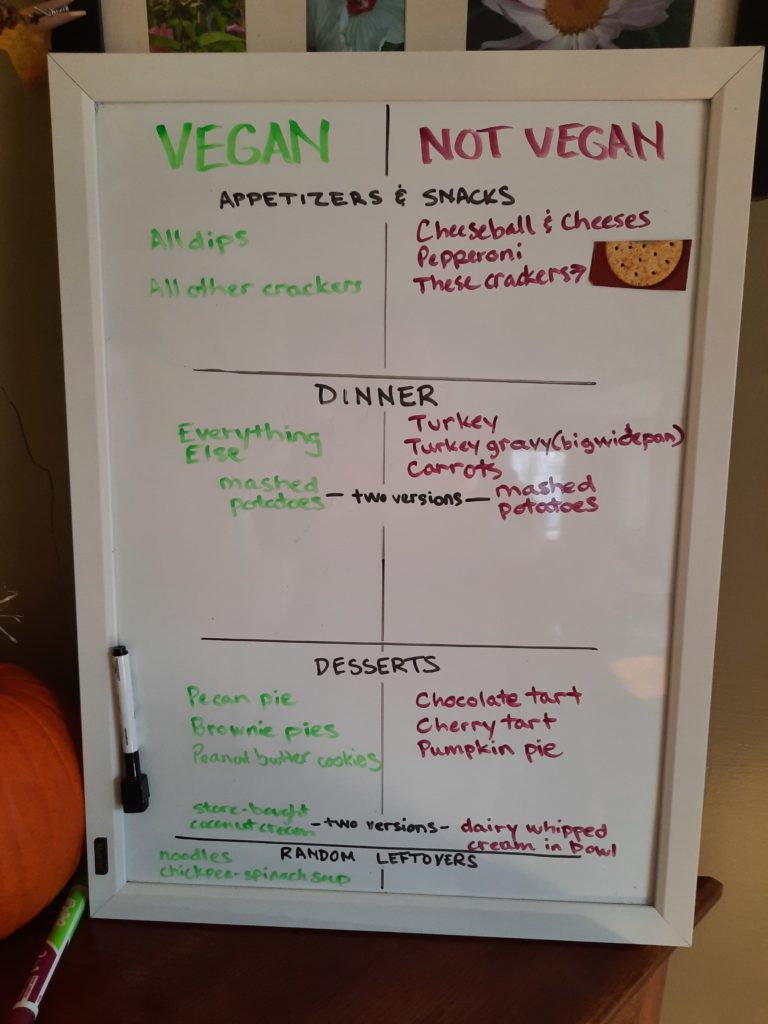 VEGAN
NOT VEGAN
APPETIZERS & SNACKS
All dips
All other crackers
Cheeseball & Cheeses
Pepperoni
These crackers→
DINNER
Everything
Else
Turkey
Turkey gravy (big wide pan)
Carrots
mashed
potatoes
– two versions –
mashed
potatoes
DESSERTS
Pecan pie
Brownie pies
Peanut butter cookies
Chocolate tart
Cherry tart
Pumpkin pie
store-bought
coconut cream
– two versions –
dairy whipped
cream in bowl
RANDOM LEFTOVERS
noodles
chickpea-spinach soup